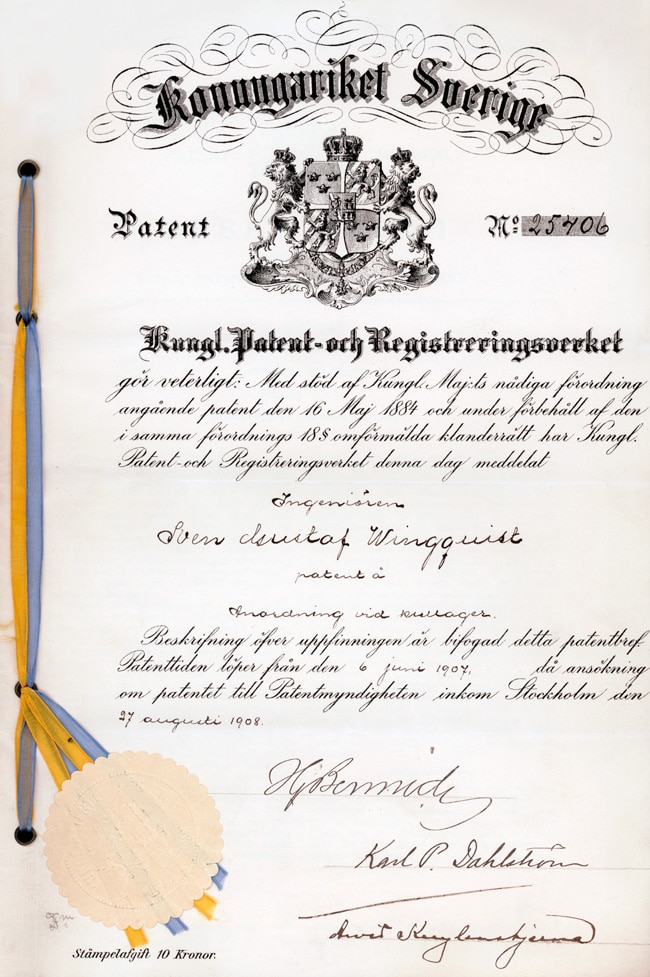 Konungariket Sverige
Patent Nº 25406
Kungl. Patent- och Registreringsverket
gör veterligt: Med stöd af Kungl. Maj:ts nådiga förordning
angående patent den 16 Maj 1884 och under förbehåll af den
i samma förordnings 18 § omförmälda klanderrätt har Kungl.
Patent- och Registreringsverket denna dag meddelat
Ingeniören
Sven Gustaf Wingquist
patent å
Anordning vid kullager.
Beskrifning öfver uppfinningen är bifogad detta patentbref.
Patenttiden löper från den 6 juni 1907, då ansökning
om patentet till Patentmyndigheten inkom Stockholm den
27 augusti 1908.
Karl P. Dahlström
Stämpelafgift 10 Kronor.